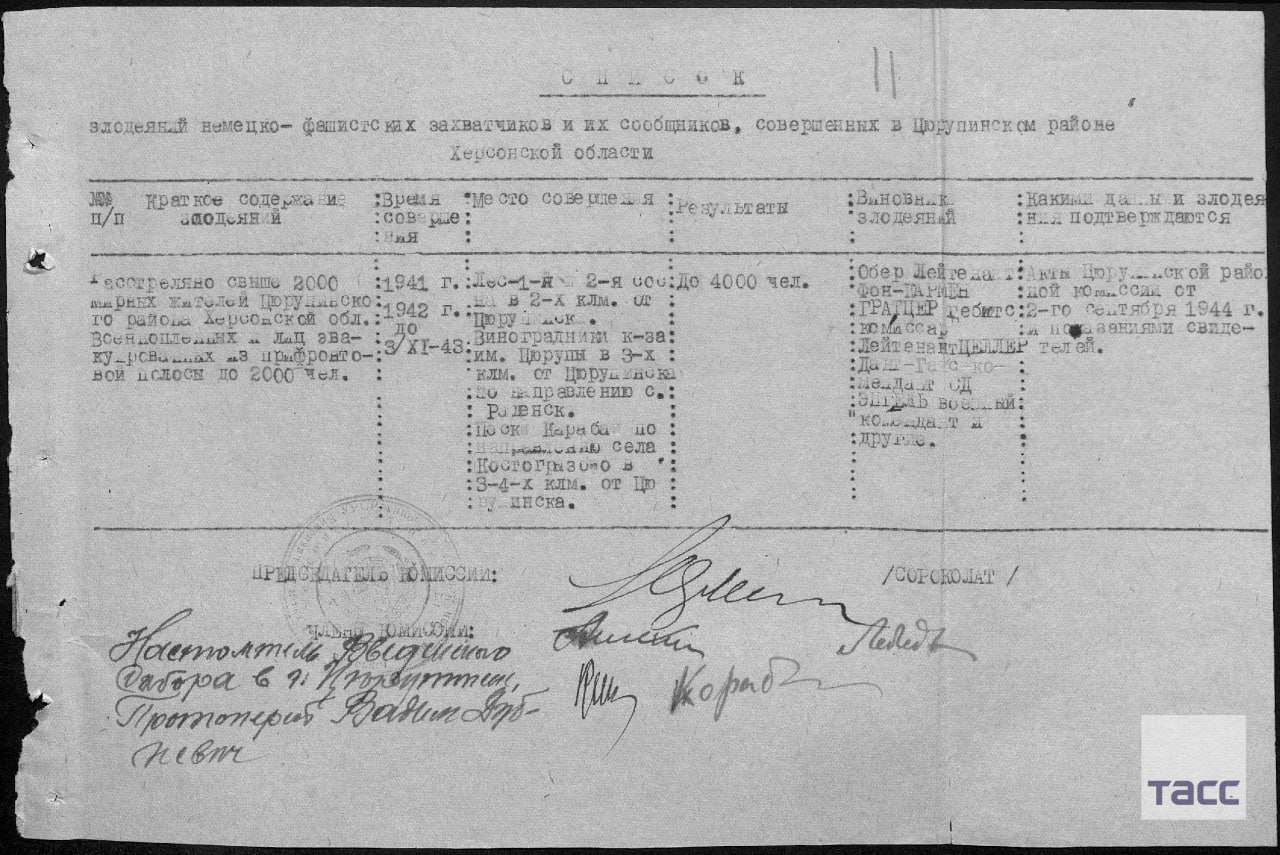 С П И С О К
11
злодеяний немецко-фашистских захватчиков и их сообщников, совершенных в Цюрупинском районе
Херсонской области
№№ п/п
Краткое содержание злодеяний
Время соверше ния
Место совершения
Результаты
Виновники злодеяний
Какими данны и злодея ния подтверждаются
Расстреляно свыше 2000
мирных жителей Цюрупинско
го района Херсонской обл.
Военнопленных и лиц эва-
куированных из прифронто-
вой полосы до 2000 чел.
1941 г.
1942 г.
до
3/XI-43
Лес-1-й и 2-я сос
на в 2-х клм. от
Цюрупинска.
Виноградники к-за
им. Цюрупы в 3-х
клм. от Цюрупинска
по направлению с.
Раденск.
Пески Карабай по
направлению села
Костогрызово в
3-4-х клм. от Цю
рупинска.
До 4000 чел.
Обер Лейтенант
ГРАТЦЕР гебитс
комиссар
Лейтенант ЦЕЛЛЕР
мендант СД
ЭНГЕЛЬ военный
комендант и
другие.
Акты Цюрупинской район
ной комиссии от
2-го сентября 1944 г.
и показаниями свиде-
телей.
ПРЕДСЕДАТЕЛЬ КОМИССИИ:
/СОРОКОЛАТ/
ЧЛЕНЫ КОМИССИИ:
Лебедь
Настоятель Введенского
Собора в г. Цюрупинск,
Протоиерей Вадим Дуб-
невич
тасс